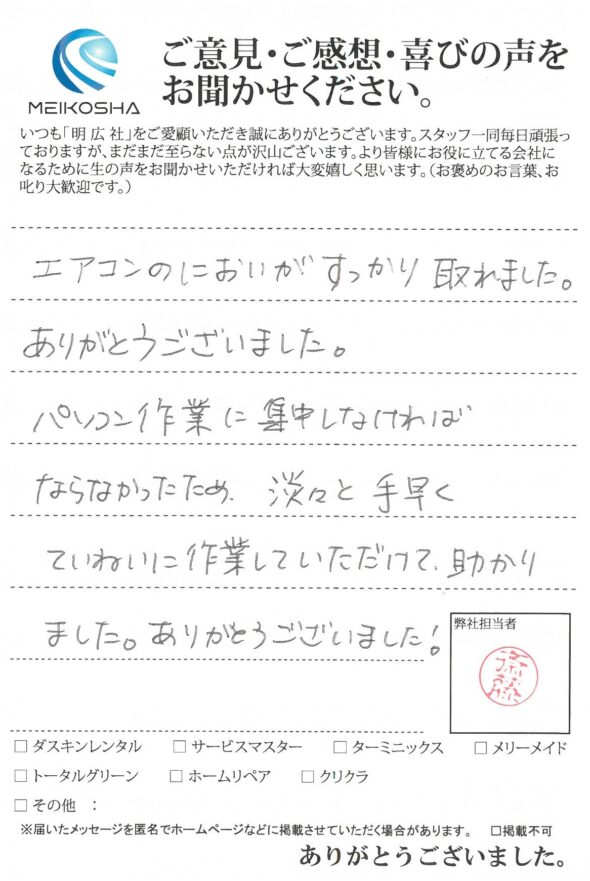 MEIKOSHA
ご意見・ご感想・喜びの声を
お聞かせください。
いつも「明広社」をご愛顧いただき誠にありがとうございます。スタッフ一同毎日頑張っ
ておりますが、まだまだ至らない点が沢山ございます。より皆様にお役に立てる会社に
なるために生の声をお聞かせいただければ大変嬉しく思います。（お褒めのお言葉、お
叱り大歓迎です。）
エアコンのにおいがすっかり取れました。
ありがとうございました。
パソコン作業に集中しなければ
ならなかったため、淡々と手早く
ていねいに作業していただけて、助かり
ました。ありがとうございました!
弊社担当者
□ ダスキンレンタル □ サービスマスター □ ターミニックス □ メリーメイド
□ トータルグリーン □ ホームリペア □ クリクラ
□ その他 ：
※届いたメッセージを匿名でホームページなどに掲載させていただく場合があります。 □掲載不可
ありがとうございました。